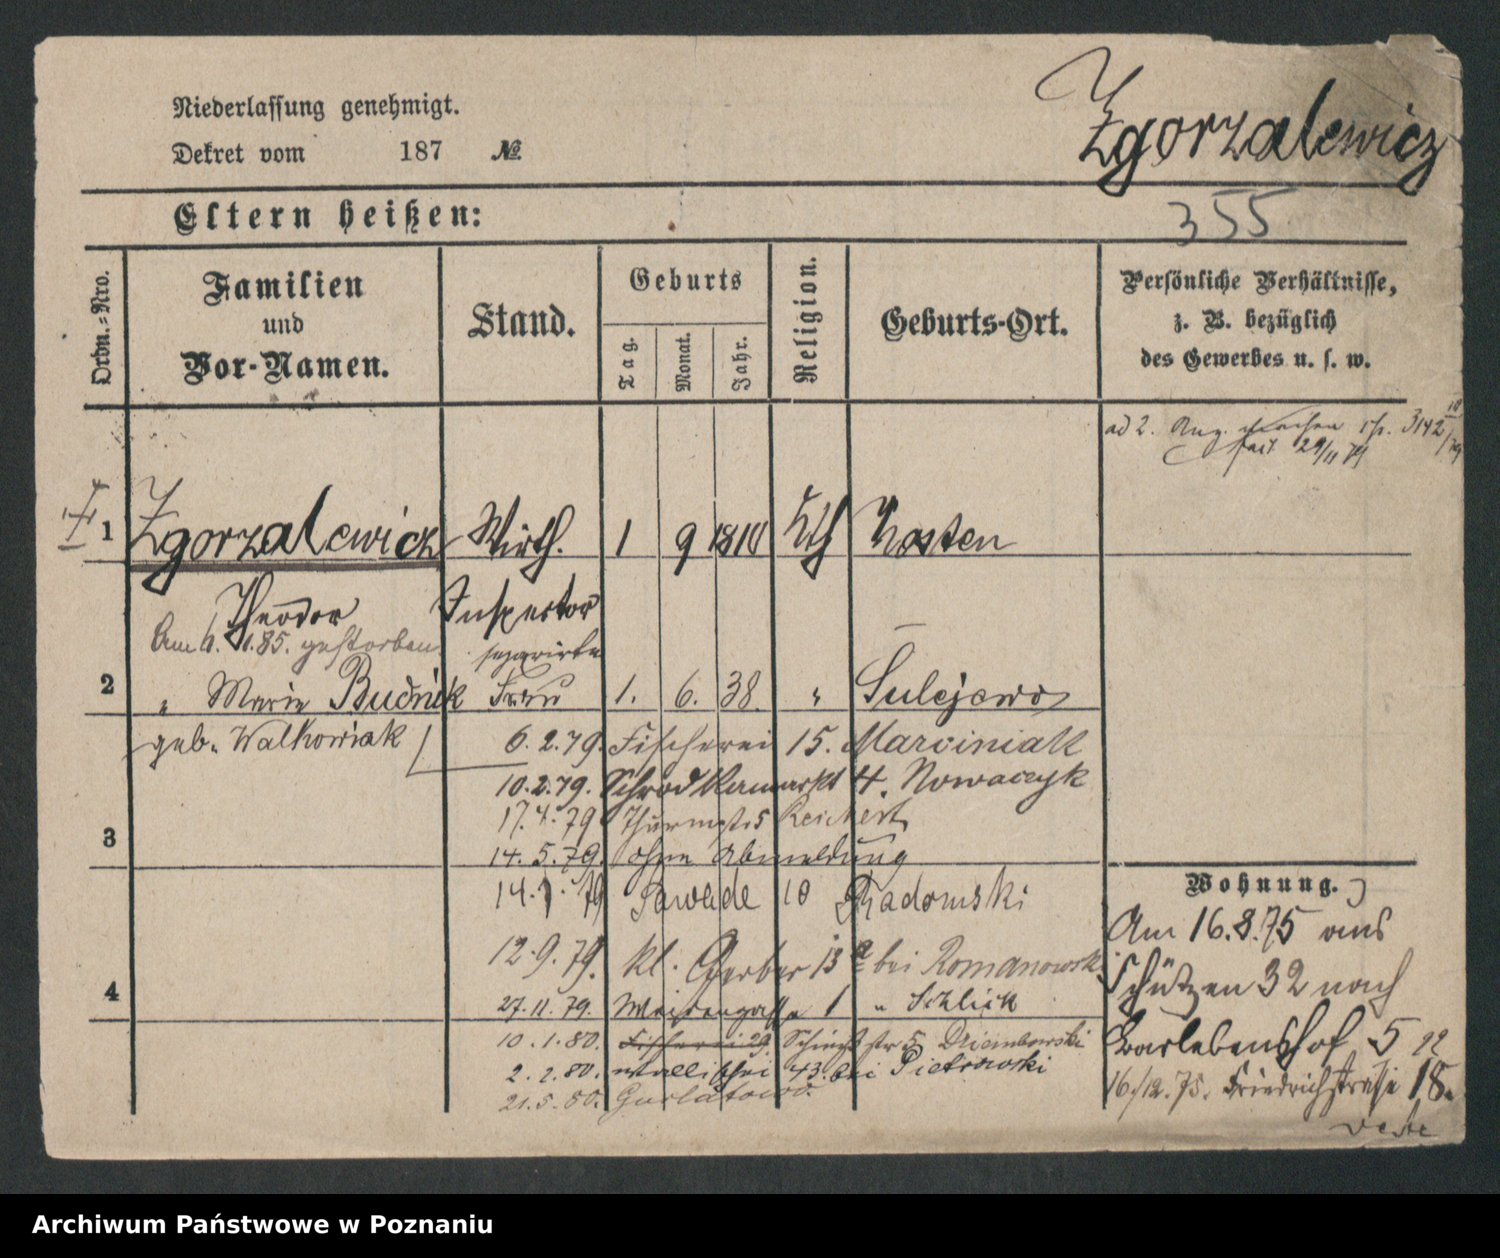 Niederlassung genehmigt.
Dekret vom 187 No.
Zgorzalewicz
355
Eltern heißen:
Ordn.-Nro.
Familien und Vor-Namen.
Stand.
Geburts
Tag.
Monat.
Jahr.
Religion.
Geburts-Ort.
Persönliche Verhältnisse,
z. B. bezüglich
des Gewerbes u. s. w.
ad 2. Ang. 3142
seit 29/11 79
1 Zgorzalewicz Wirth. 1 9 1810 Kth Kosten
Theodor Inspector
Am 6. 1.85. gestorben
separirte
2 " Marie Budnick Frau 1. 6. 38. " Sulejewo
geb. Walkowiak
6.2.79. Fischerei 15. Marciniak
10.2.79. Schrodkamarkt 4. Nowaczyk
17.4.79 Thurmstr 5 Reichert
3
14.5.79. ohne Abmeldung
14. 79 Sawade 10 Radomski
12.9.79. kl. Gerber 13a bei Romanowski
4
27.11.79. 1 " Schlick
10.1.80. Fischerei 29 Schieß str 5 Dziembowski
2.2.80. Wallischei 43. bei Pietrowski
21.5.80. Gurlatowo.
Wohnung.
Am 16.8.75 aus
Schützen 32 nach
Bartebenshof 5 22
16/12.75. Friedrichstraße 18.
Archiwum Państwowe w Poznaniu